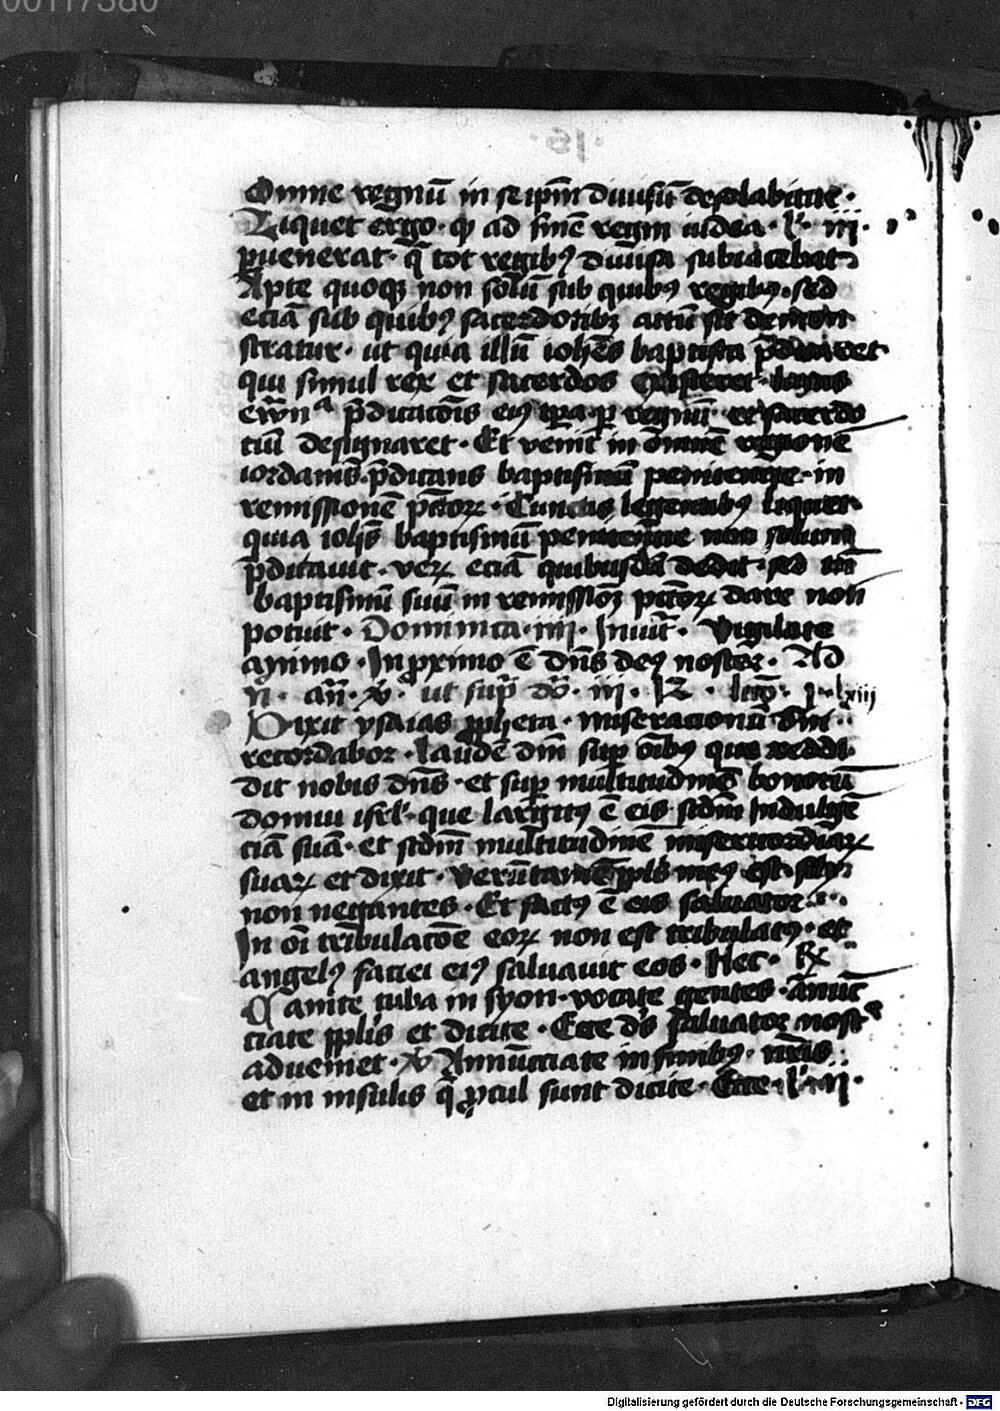 00117380
Omne regnū in se ip̄m diuisū desolabitur·
Liquet ergo· ꝙ ad finē regni iudea· l'· iij·
ꝑuenerat· q̄ tot regibꝰ diuisa subiacebat
Apte quoqꝫ non solū sub quibꝰ regibꝰ· sed
eciā sub quibꝰ sacerdotibꝫ actū sit demon
stratur· ut quia illū ioh̄es baptista p̄dicaret
qui simul rex et sacerdos existeret· lucas
ewn̄ᵃ p̄dicacōis eiꝰ tꝑa ꝑ regnū· et sacerdo
tiū designaret· Et venit in om̄nē regionē
iordanis· p̄dicans baptismū penitencie· in
remissionē pctōꝝ· Cunctis legentibꝰ liquet·
quia ioh̄s baptismū penitencie non solum
p̄dicauit· veꝝ eciā quibusdā dedit· sed tn̄
baptismū suū in remissioꝫ pctōꝝ dare non
potuit· Dominica· iiij· Inuit̄· Vigilate
animo· In ꝓximo ē dn̄s deꝰ noster· Ad
n̄· an̄· ꝟ· ut sup̄ dō· iij· R· · lxiii
Dixit ysaias ꝓpheta· miseracionū dn̄i··
recordabor· laudē dn̄i suꝑ oībꝰ que reddi·
dit nobis dn̄s· et suꝑ multitudinē bonorū
domui isrl'· que largitꝰ ē eis scdm̄ Indulgē
ciā suā· et scdm̄ multitudinē misericordiaꝝ
suaꝝ et dixit· verūtamē ppl̄s meꝰ est· filij
non negantes· Et factꝰ ē eis saluator··
In oī tribulacōe eoꝝ non est tribulatꝰ· et
angelꝰ faciei eiꝰ saluauit eos· Hec· Rx
Canite tuba in syon· vocate gentes· ānūc
ciate ppl̄is et dicite· Ecce ds̄ saluator nostᵉʳ
adueniet· ꝟ Annūcciate in finibꝰ· nr̄is··
et in insulis q̄ ꝓcul sunt dicite· Ecce· l'· ij·
Digitalisierung gefördert durch die Deutsche Forschungsgemeinschaft - DFG